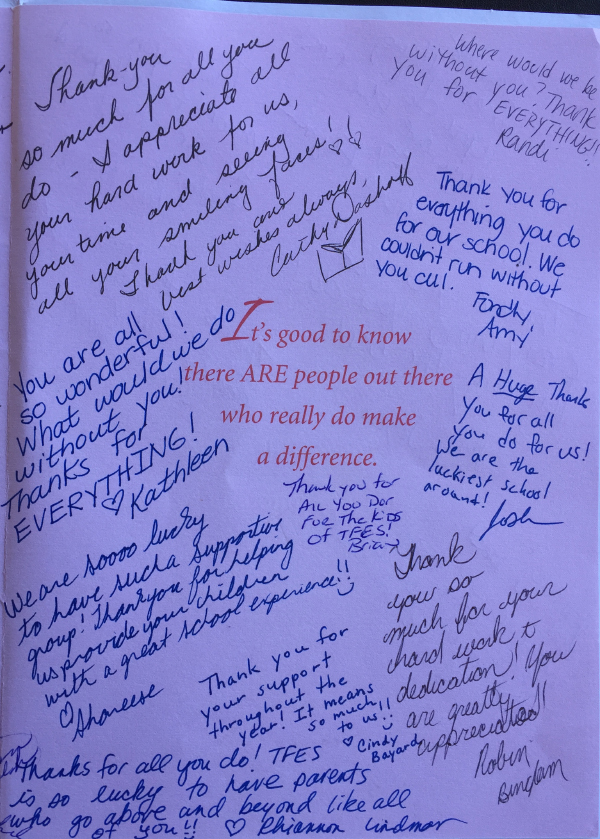 Thank-you
so much for all you
do - I appreciate all
your hard work for us,
your time and seeing
all your smiling faces!!
Thank you and
best wishes always,
Cathy Dashoff
Where would we be
without you? Thank
you for EVERYTHING!!
Randi
Thank you for
everything you do
for our school. We
couldn't run without
you all.
Fondly,
Amy
You are all
so wonderful!
What would we do
without you!
Thanks for
EVERYTHING!
Kathleen
It's good to know
there ARE people out there
who really do make
a difference.
A Huge Thanks
you for all
you do for us!
We are the
luckiest school
around!
Josh
Thank you for
All You Do
For The Kids
Of TFES!
We are soooo lucky
to have such a supportive
group! Thank you for helping
us provide your children
with a great school experience!!
Shareese
Thank you so
much for your
hard work &
dedication! You
are greatly
appreciated!!
Robin
Bingham
Thank you for
your support
throughout the
year! It means
so much
to us!!
Cindy
Bayard
Thanks for all you do! TFES
is so lucky to have parents
who go above and beyond like all
of you!!
Rhiannon Lindmar